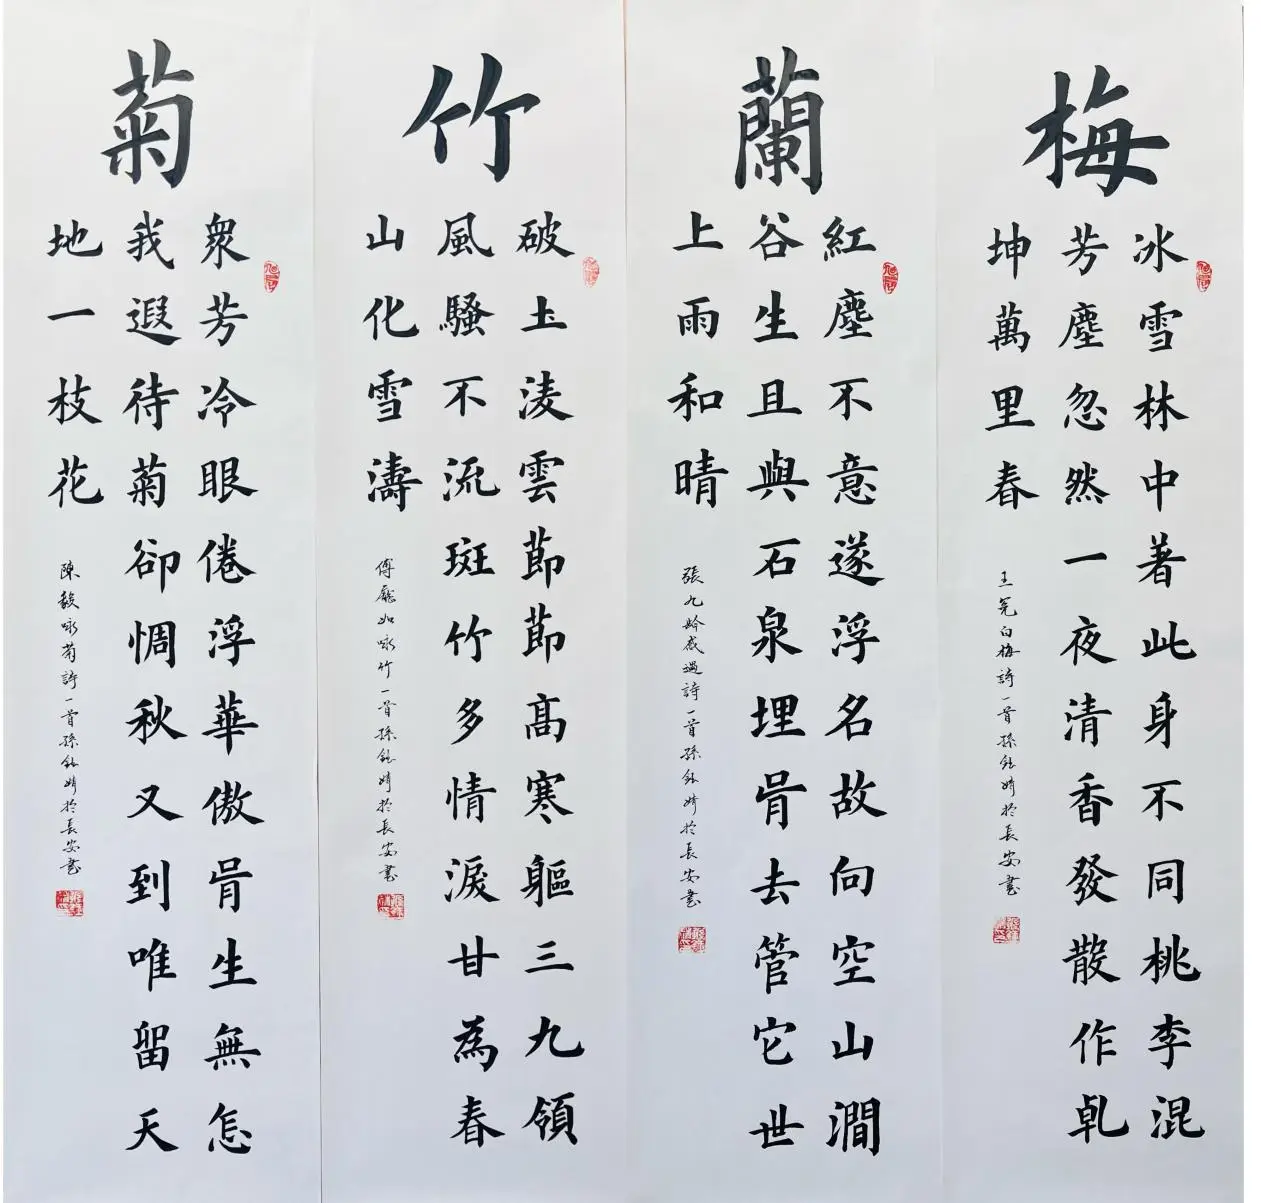 梅
冰雪林中著此身不同桃李混
芳塵忽然一夜清香發散作乹
坤萬里春
王冕白梅詩一首孫銥婧於長安書
蘭
紅塵不意遂浮名故向空山澗
谷生且與石泉埋骨去管它世
上雨和晴
張九齡感遇詩一首孫銥婧於長安書
竹
破土淩雲莭莭高寒軀三九領
風騷不流斑竹多情淚甘為春
山化雪濤
傅廳如咏竹一首孫銥婧於長安書
菊
衆芳冷眼倦浮華傲骨生無怎
我遐待菊卻惆秋又到唯留天
地一枝花
陳毅咏菊詩一首孫銥婧於長安書